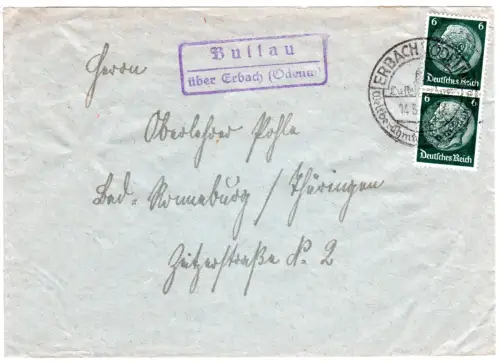 Bullau
über Erbach (Odenw)
ERBACH (ODENW)
14.3.
6 6
Deutsches Reich
6 6
Deutsches Reich
Herrn
Oberlehrer Pohle
Bad-Ronneburg / Thüringen
Zeitzerstraße No. 2